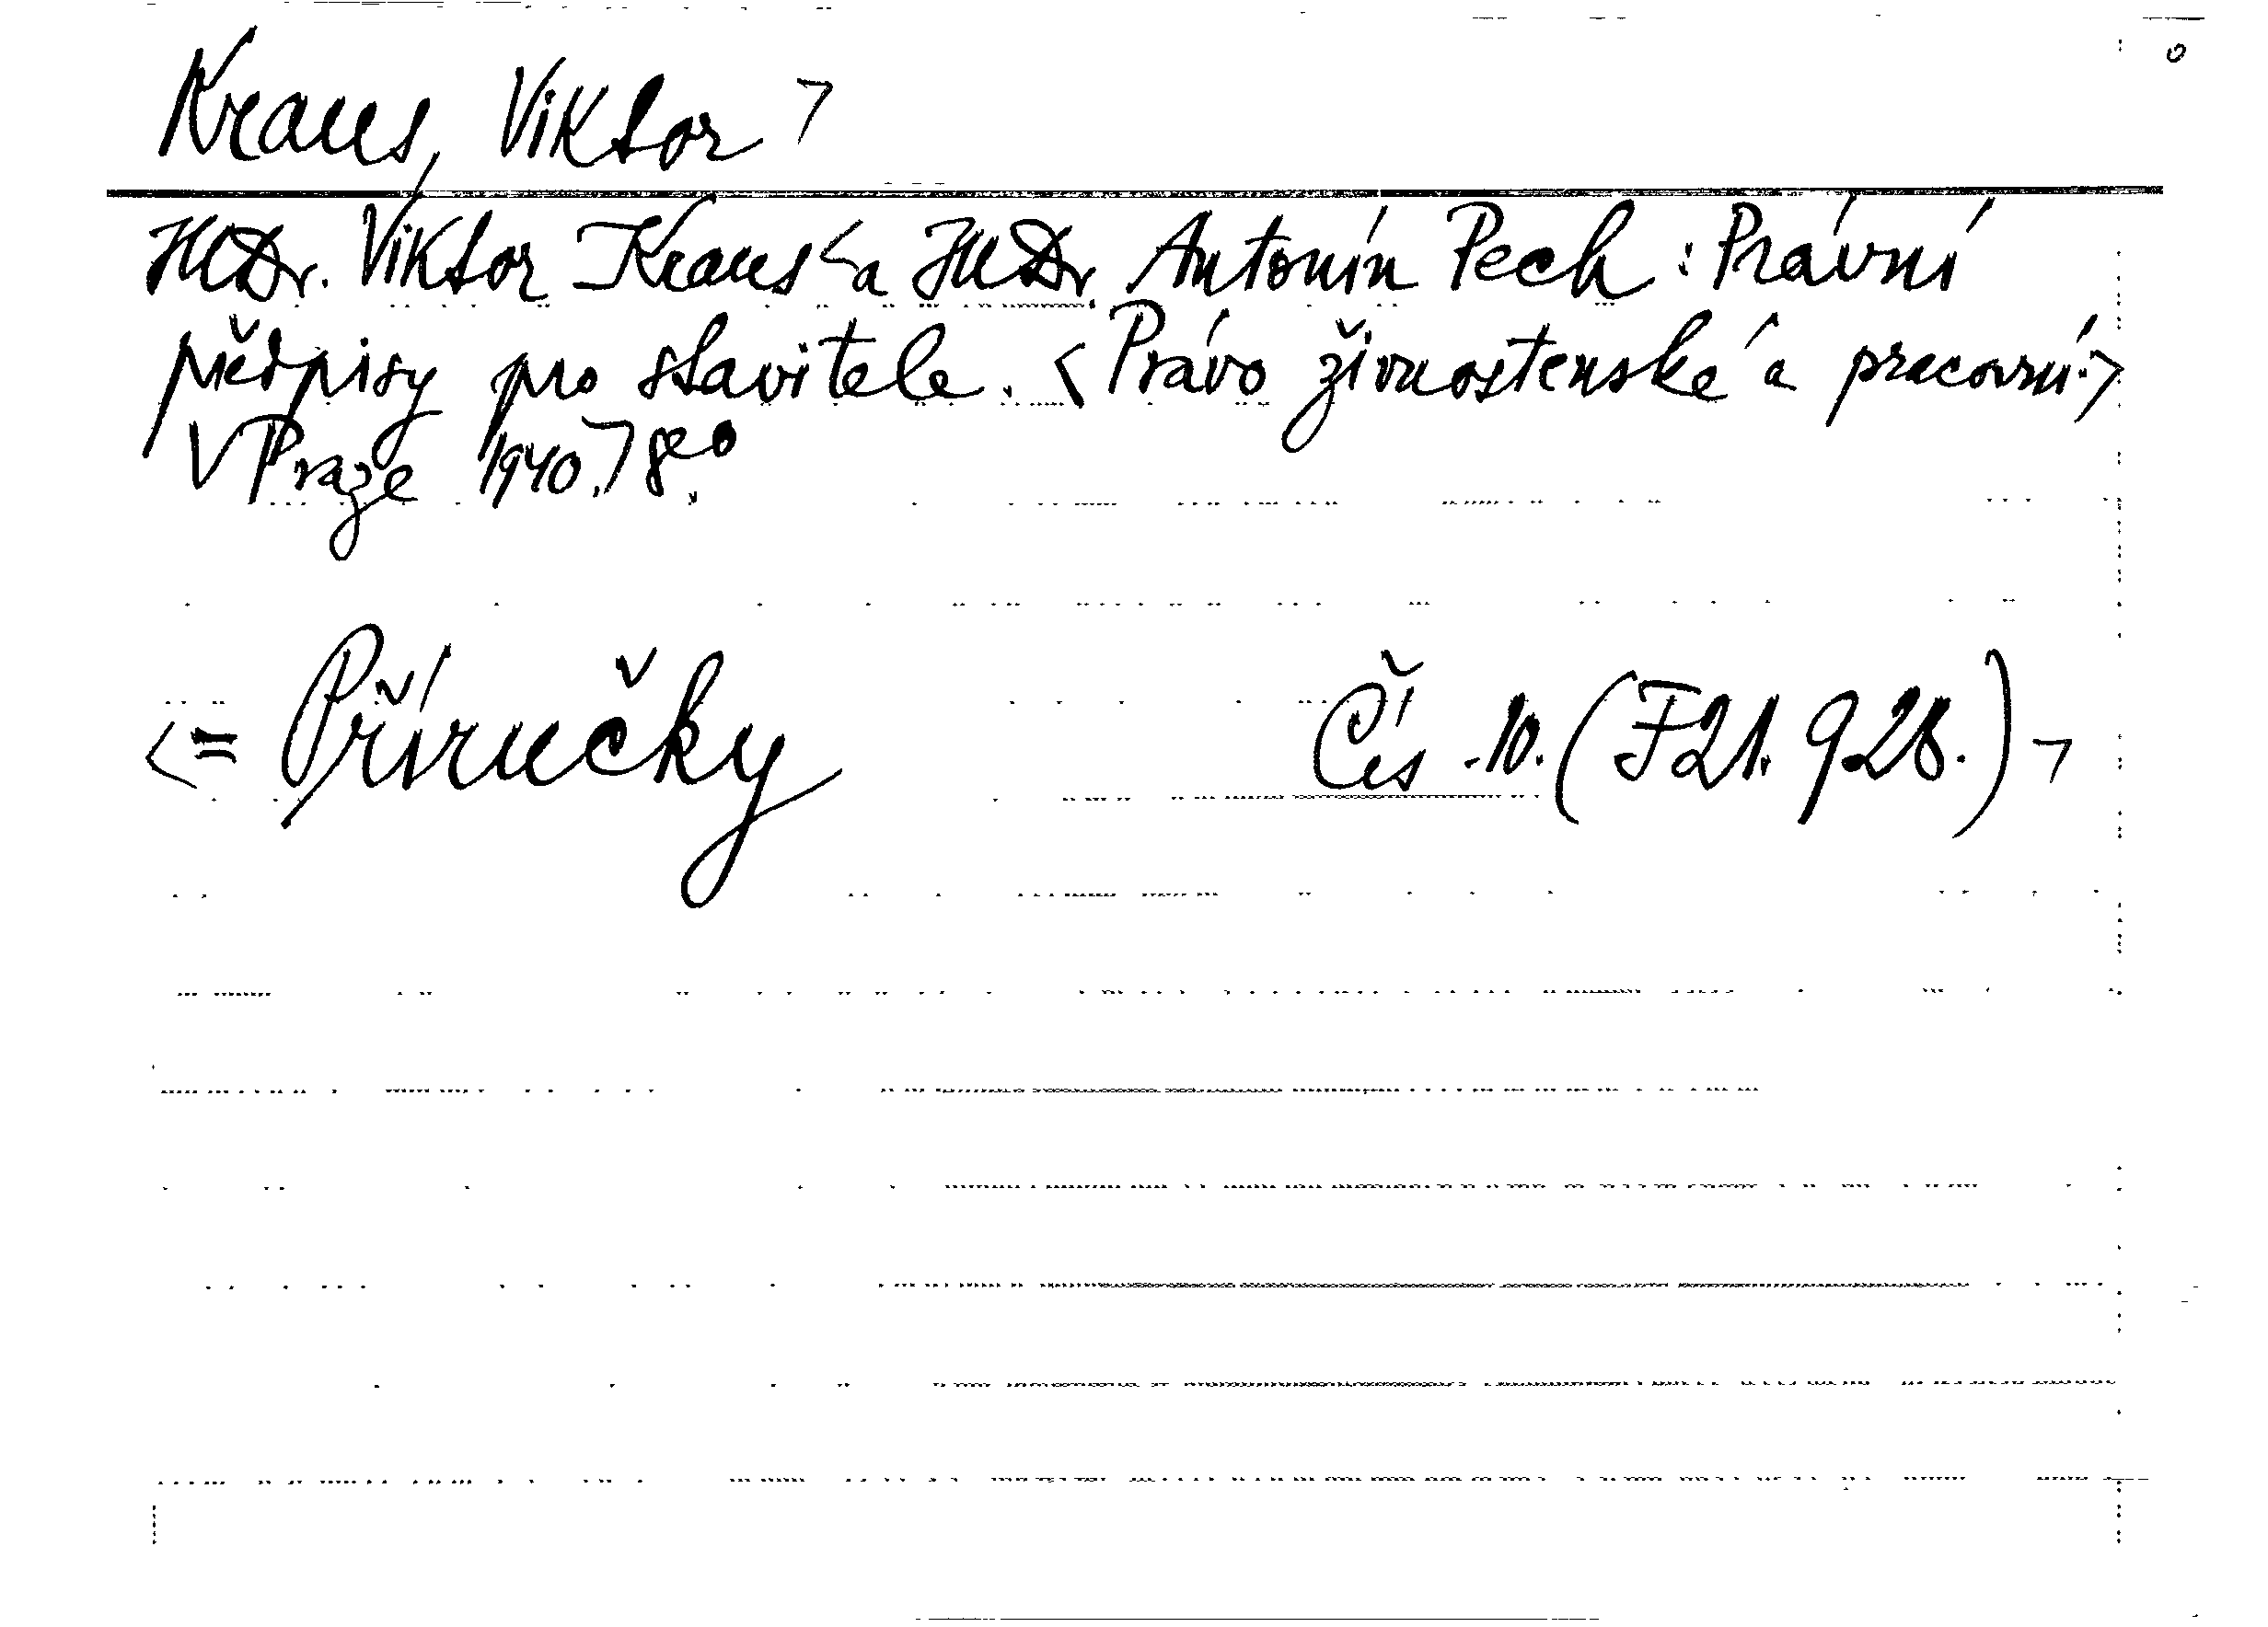 Kraus, Viktor >
JUDr. Viktor Kraus < a JUDr. Antonín Pech : Právní
předpisy pro stavitele. < Právo živnostenské a pracovní. >
V Praze 1940. > 8°.
< = Příručky Čís. 10. (F 21. 928.) >